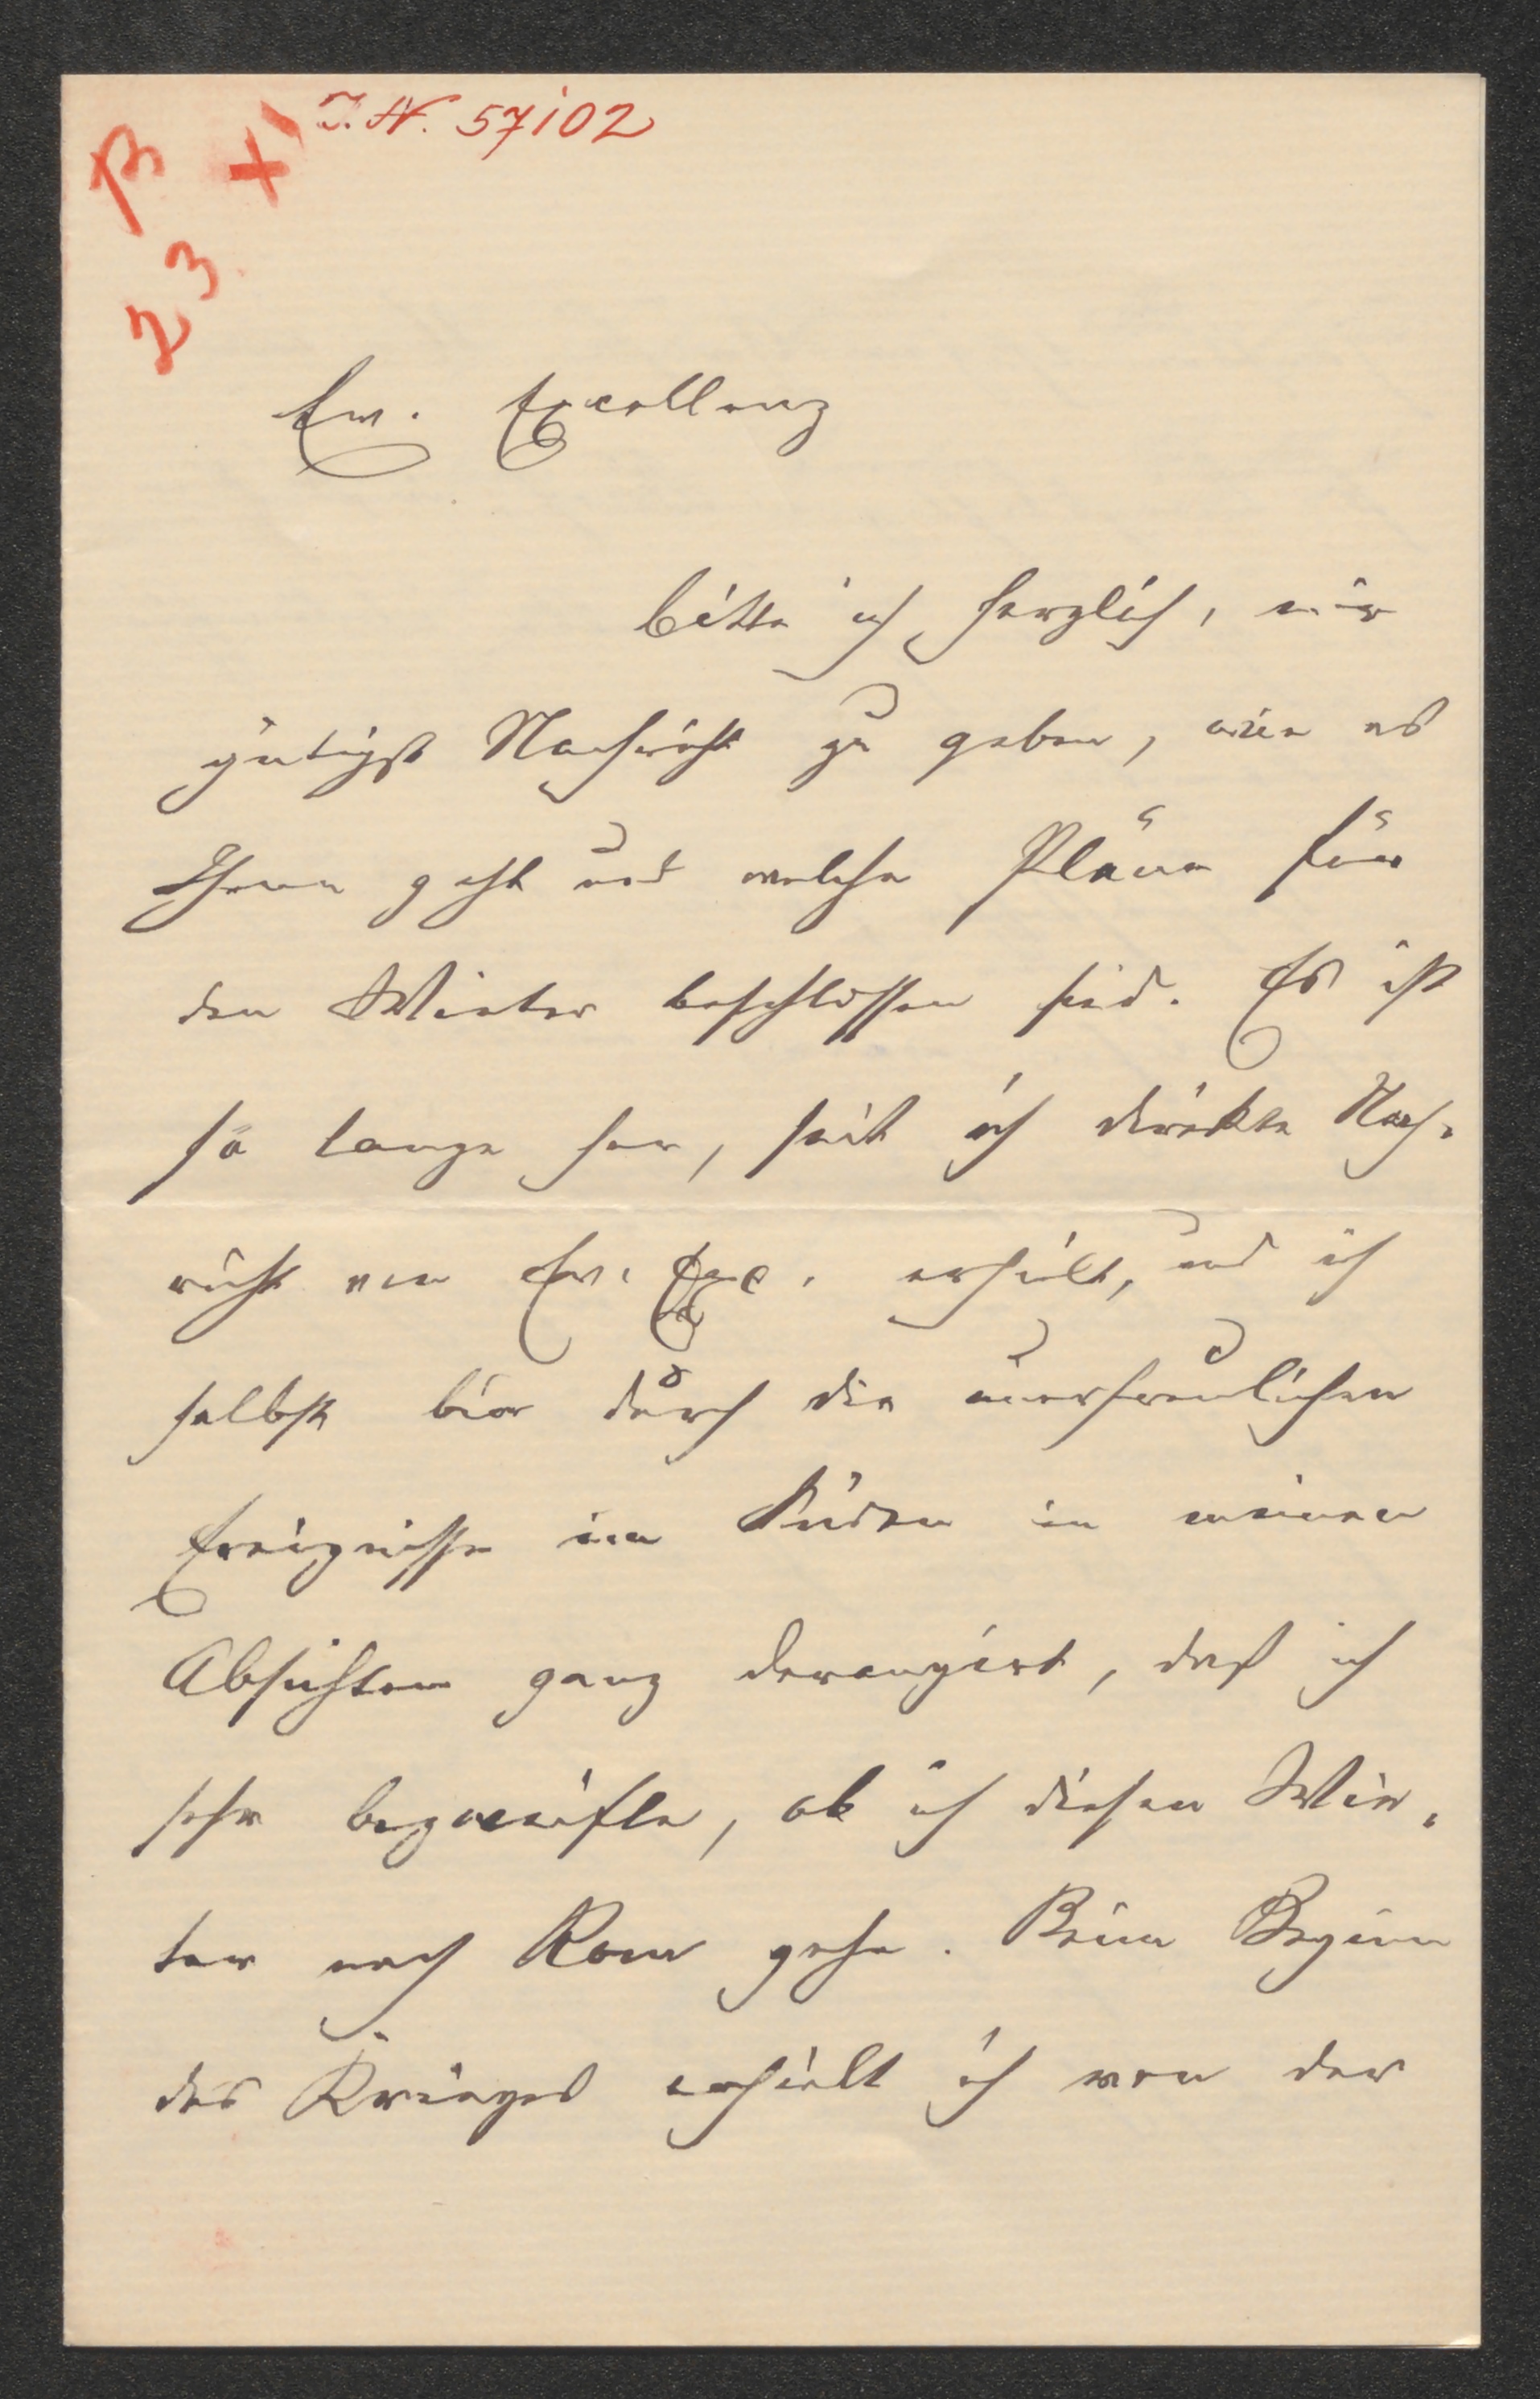 I. N. 57102
B XI
23
Ew. Excellenz
bitte ich herzlich, mir
gütigst Nachricht zu geben, wie es
Ihnen geht und welche Pläne für
den Winter beschlossen sind. Es ist
so lange her, seit ich direkte Nach-
richt von Ew. Exc. erhielt, und ich
selbst bin durch die unerfreulichen
Ereignisse im Süden in meinen
Absichten ganz derangirt, daß ich
sehr bezweifle, ob ich diesen Win-
ter nach Rom gehe. Beim Beginn
des Krieges erhielt ich von der